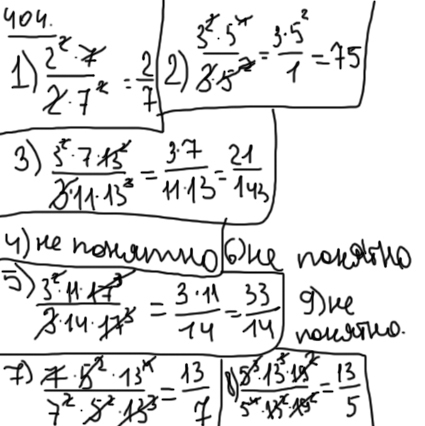 404.
1) (2² · 7)/(2 · 7²) = 2/7
2) (3² · 5⁴)/(3 · 5²) = (3 · 5²)/1 = 75
3) (3² · 7 · 13²)/(3 · 11 · 13³) = (3 · 7)/(11 · 13) = 21/143
4) не понятно
6) не понятно
5) (3² · 11 · 17³)/(3 · 14 · 17³) = (3 · 11)/14 = 33/14
9) не
понятно.
7) (7 · 5² · 13⁴)/(7² · 5² · 13³) = 13/7
8) (5³ · 13³ · 19²)/(5⁴ · 13² · 19²) = 13/5